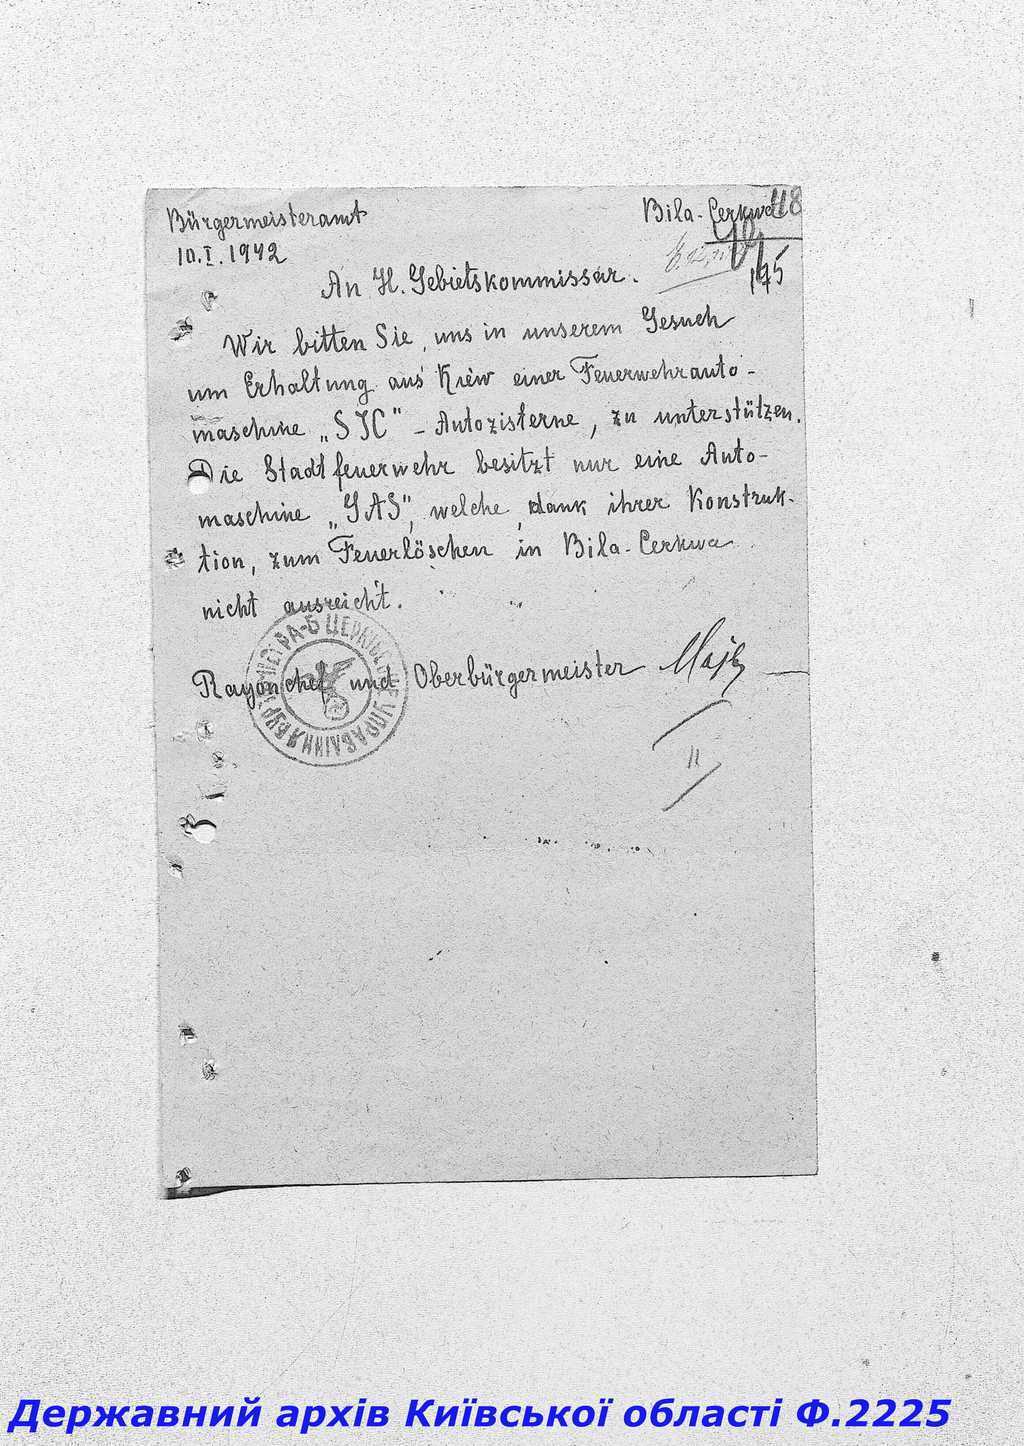 Bürgermeisteramt
Bila-Cerkwa
48
10.I.1942
175
An H. Gebietskommissar.
Wir bitten Sie, uns in unserem Gesuch
um Erhaltung aus Kiew einer Feuerwehrauto-
maschine „SIC" - Autozisterne, zu unterstützen.
Die Stadtfeuerwehr besitzt nur eine Auto-
maschine „GAS", welche, dank ihrer Konstruk-
tion, zum Feuerlöschen in Bila-Cerkwa
nicht ausreicht.
Rayonchef und Oberbürgermeister
БУРГОМІСТРА Б ЦЕРКІВСЬКЕ УПРАВЛІННЯ
II
Державний архів Київської області Ф.2225